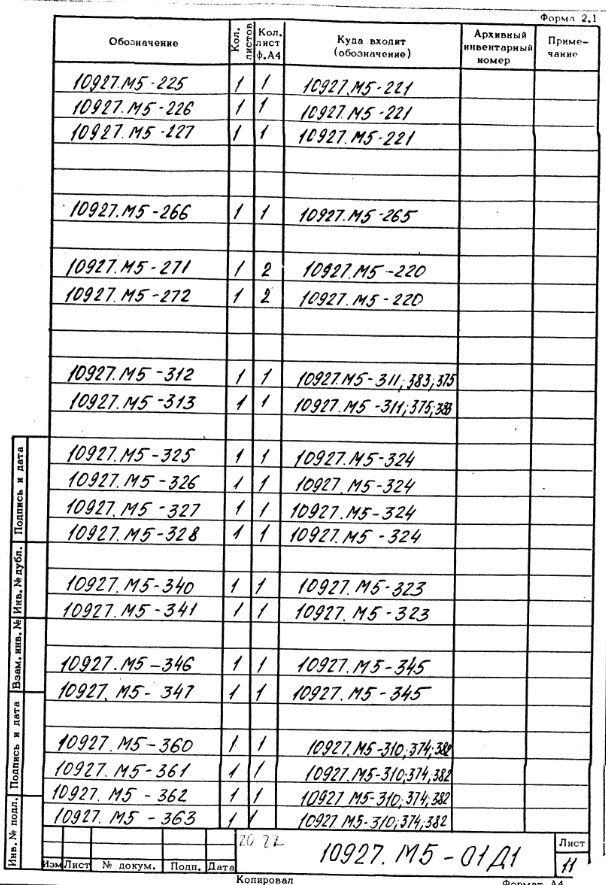 Форма 2.1
Обозначение Кол. листов Кол. лист ф.А4 Куда входит (обозначение) Архивный инвентарный номер Приме-чание
10927.М5-225 1 1 10927.М5-221
10927.М5-226 1 1 10927.М5-221
10927.М5-227 1 1 10927.М5-221
10927.М5-266 1 1 10927.М5-265
10927.М5-271 1 2 10927.М5-220
10927.М5-272 1 2 10927.М5-220
10927.М5-312 1 1 10927.М5-311;383;375
10927.М5-313 1 1 10927.М5-311;375;383
10927.М5-325 1 1 10927.М5-324
10927.М5-326 1 1 10927.М5-324
10927.М5-327 1 1 10927.М5-324
10927.М5-328 1 1 10927.М5-324
10927.М5-340 1 1 10927.М5-323
10927.М5-341 1 1 10927.М5-323
10927.М5-346 1 1 10927.М5-345
10927.М5-347 1 1 10927.М5-345
10927.М5-360 1 1 10927.М5-310;374;382
10927.М5-361 1 1 10927.М5-310;374,382
10927.М5-362 1 1 10927.М5-310;374,382
10927.М5-363 1 1 10927.М5-310;374,382
Подпись и дата
Инв. № дубл.
Взам. инв. №
Подпись и дата
Инв. № подл.
Изм Лист № докум. Подп. Дата
10927.М5-01Д1
Лист
11
Копировал Формат А4